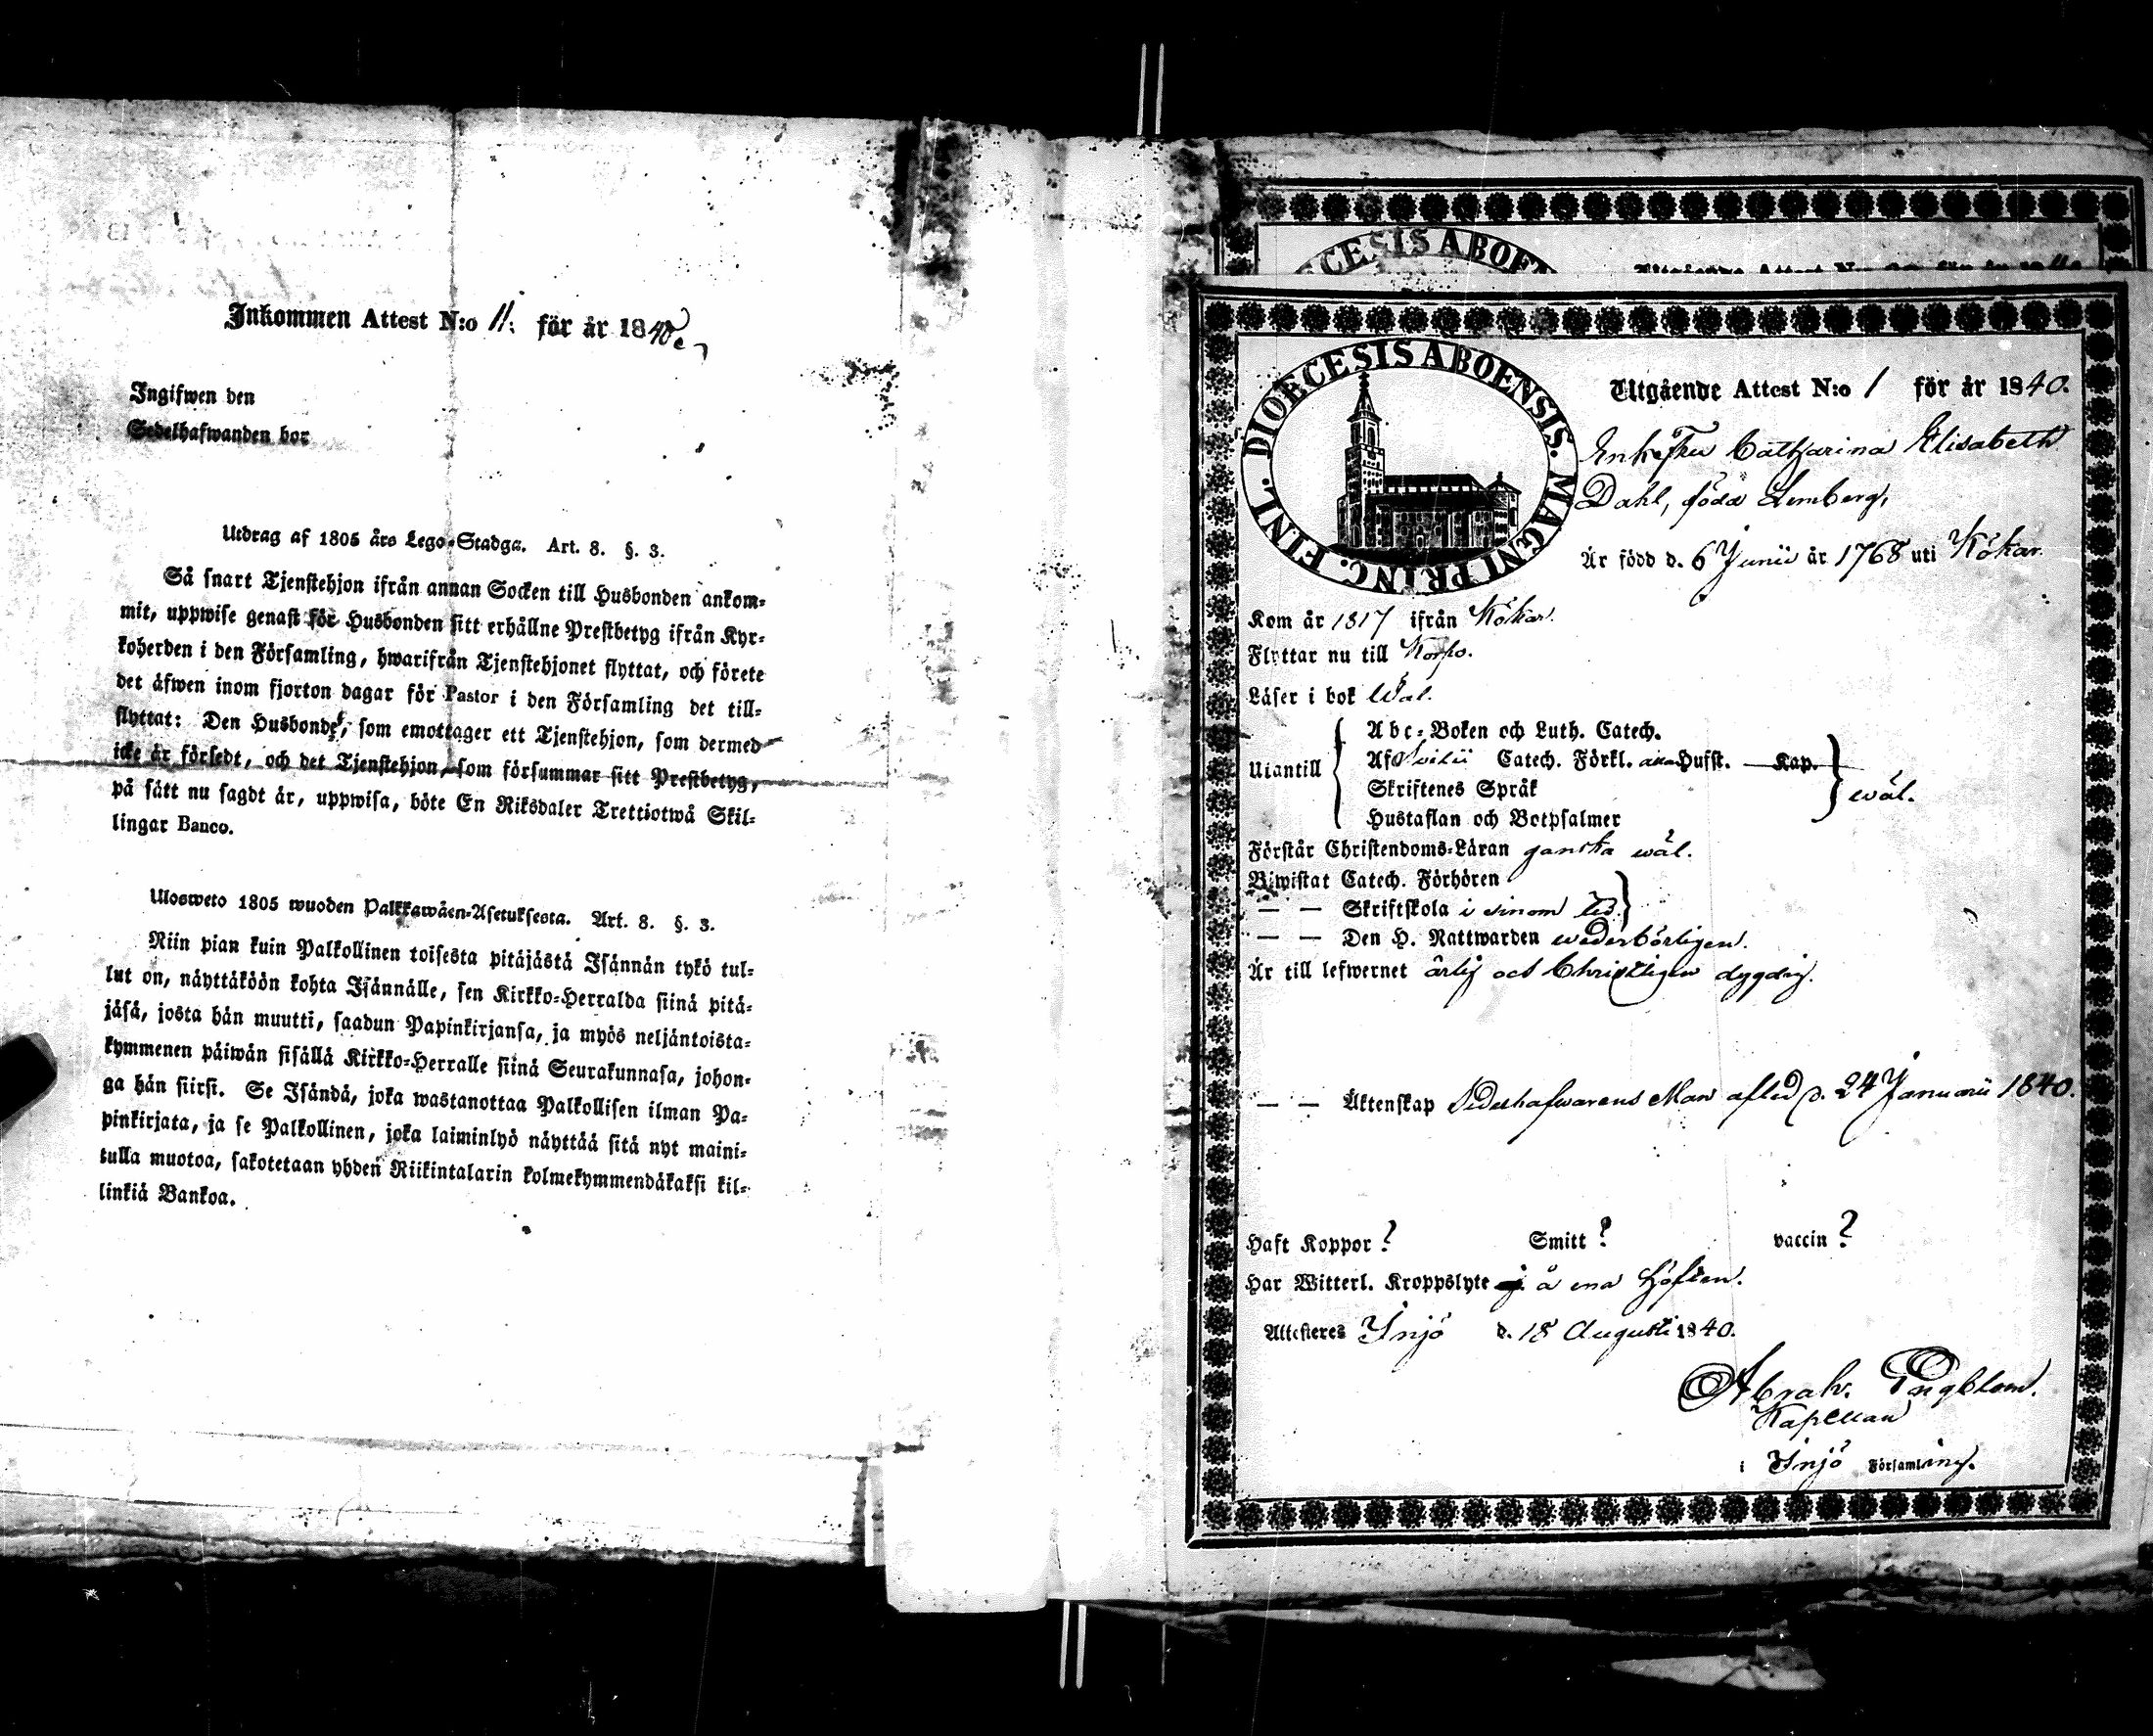 Inkommen Attest N:o 11. för år 1840
Ingifwen den
Sedelhafwanden bor
Utdrag af 1805 års Lego-Stadga. Art. 8. §. 3.
Så snart Tjenstehjon ifrån annan Socken till Husbonden ankom-
mit, uppwise genast för Husbonden sitt erhållne Prestbetyg ifrån Kyr-
koherden i den Församling, hwarifrån Tjenstehjonet flyttat, och förete
det äfwen inom fjorton dagar för Pastor i den Församling det till-
flyttat: Den Husbonde, som emottager ett Tjenstehjon, som dermed
icke är försedt, och det Tjenstehjon, som försummar sitt Prestbetyg,
på sätt nu sagdt är, uppwisa, böte En Riksdaler Trettiotwå Skil-
lingar Banco.
Ulosweto 1805 wuoden Palkkawäen-Asetuksesta. Art. 8. §. 3.
Niin pian kuin Palkollinen toisesta pitäjästä Isännän tykö tul-
lut on, näyttäköön kohta Isännälle, sen Kirkko-Herralda siinä pitä-
jäsä, josta hän muutti, saadun Papinkirjansa, ja myös neljäntoista-
kymmenen päiwän sisällä Kirkko-Herralle siinä Seurakunnasa, johon-
ga hän siirsi. Se Isändä, joka wastanottaa Palkollisen ilman Pa-
pinkirjata, ja se Palkollinen, joka laiminlyö näyttää sitä nyt maini-
tulla muotoa, sakotetaan yhden Riikintalarin kolmekymmendäkaksi kil-
linkiä Bankoa.
DIOECESIS ABOENSIS. MAGNI PRINC. FINL.
Utgående Attest N:o 1 för år 1840.
Enkefru Catharina Elisabeth
Dahl, född Lemberg,
Är född d. 6 Junii år 1768 uti Kökar.
Kom år 1817 ifrån Kökar.
Flyttar nu till Korpo.
Läser i bok Wäl.
Utantill
Abc-Boken och Luth. Catech.
Af Svebilii Catech. Förkl. Hufst. Kap.
Skriftenes Språk
Hustaflan och Botpsalmer
wäl.
Förstår Christendoms-Läran ganska wäl.
Biwistat Catech. Förhören
— — Skriftskola i sinom tid.
— — Den H. Nattwarden wederbörligen.
Är till lefwernet ärlig och Christligen dygdig.
— — Äktenskap Sedelhafwarens Man afled d. 24 Januarii 1840.
Haft Koppor? Smitt? vaccin?
Har Witterl. Kroppslyte å ena höften.
Attesteres Jnjö d. 18 Augusti 1840.
Abrah. Engblom.
Kapellan
i Jnjö Församling.